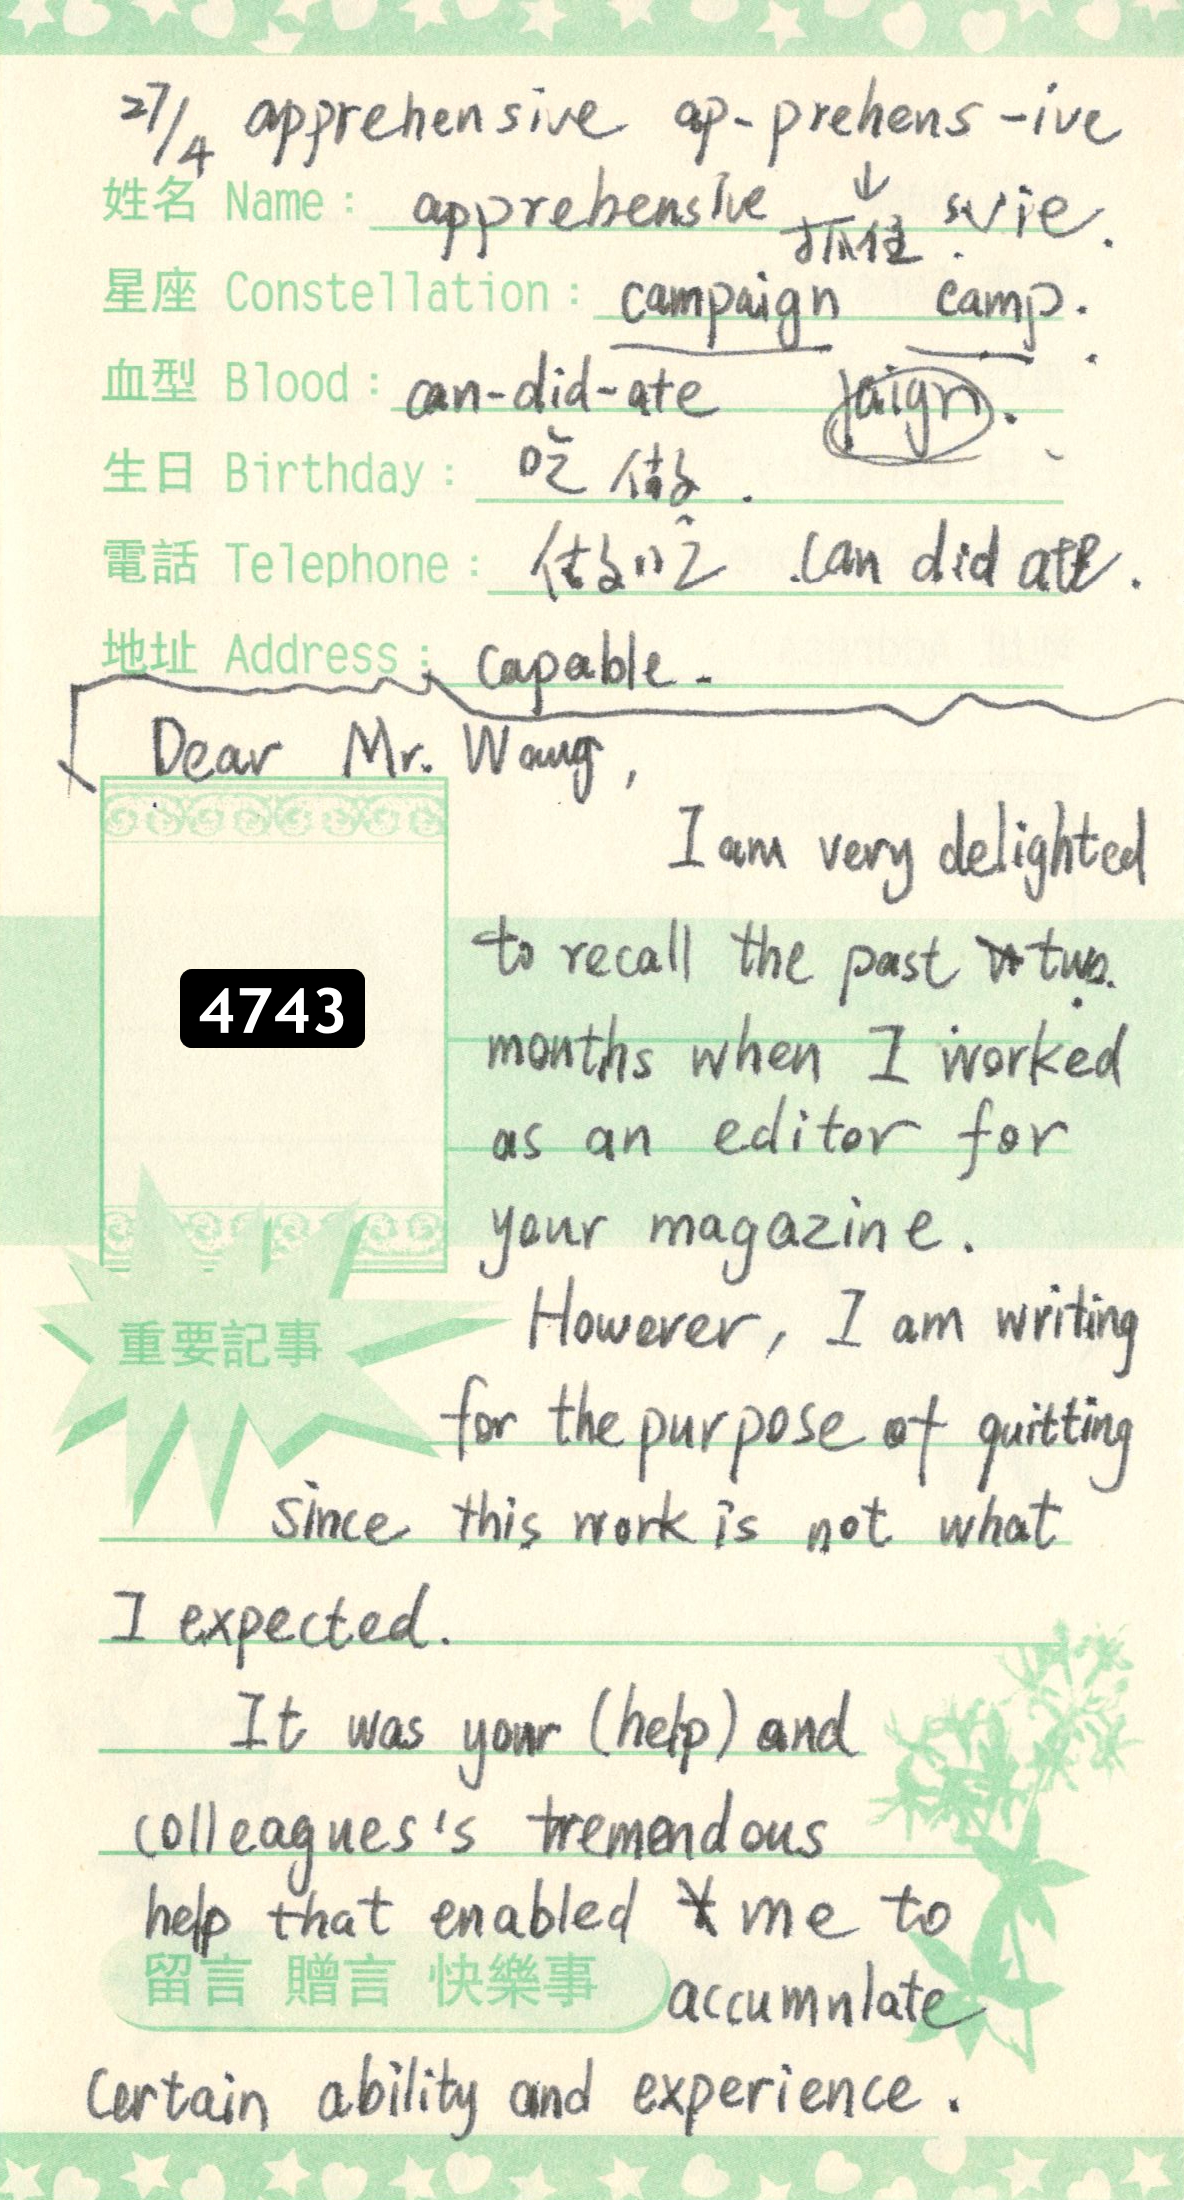 27/4 apprehensive ap-prehens-ive
姓名 Name: apprehensive ↓ 抓住. svie.
星座 Constellation: campaign camp.
血型 Blood: can-did-ate paign.
生日 Birthday: 吃 做.
電話 Telephone: 做吃 .can did ate.
地址 Address: capable.
Dear Mr. Wang,
I am very delighted
to recall the past two
months when I worked
4743
as an editor for
your magazine.
However, I am writing
重要記事
for the purpose of quitting
since this work is not what
I expected.
It was your (help) and
colleagues's tremendous
help that enabled me to
留言 贈言 快樂事 accumnlate
certain ability and experience.